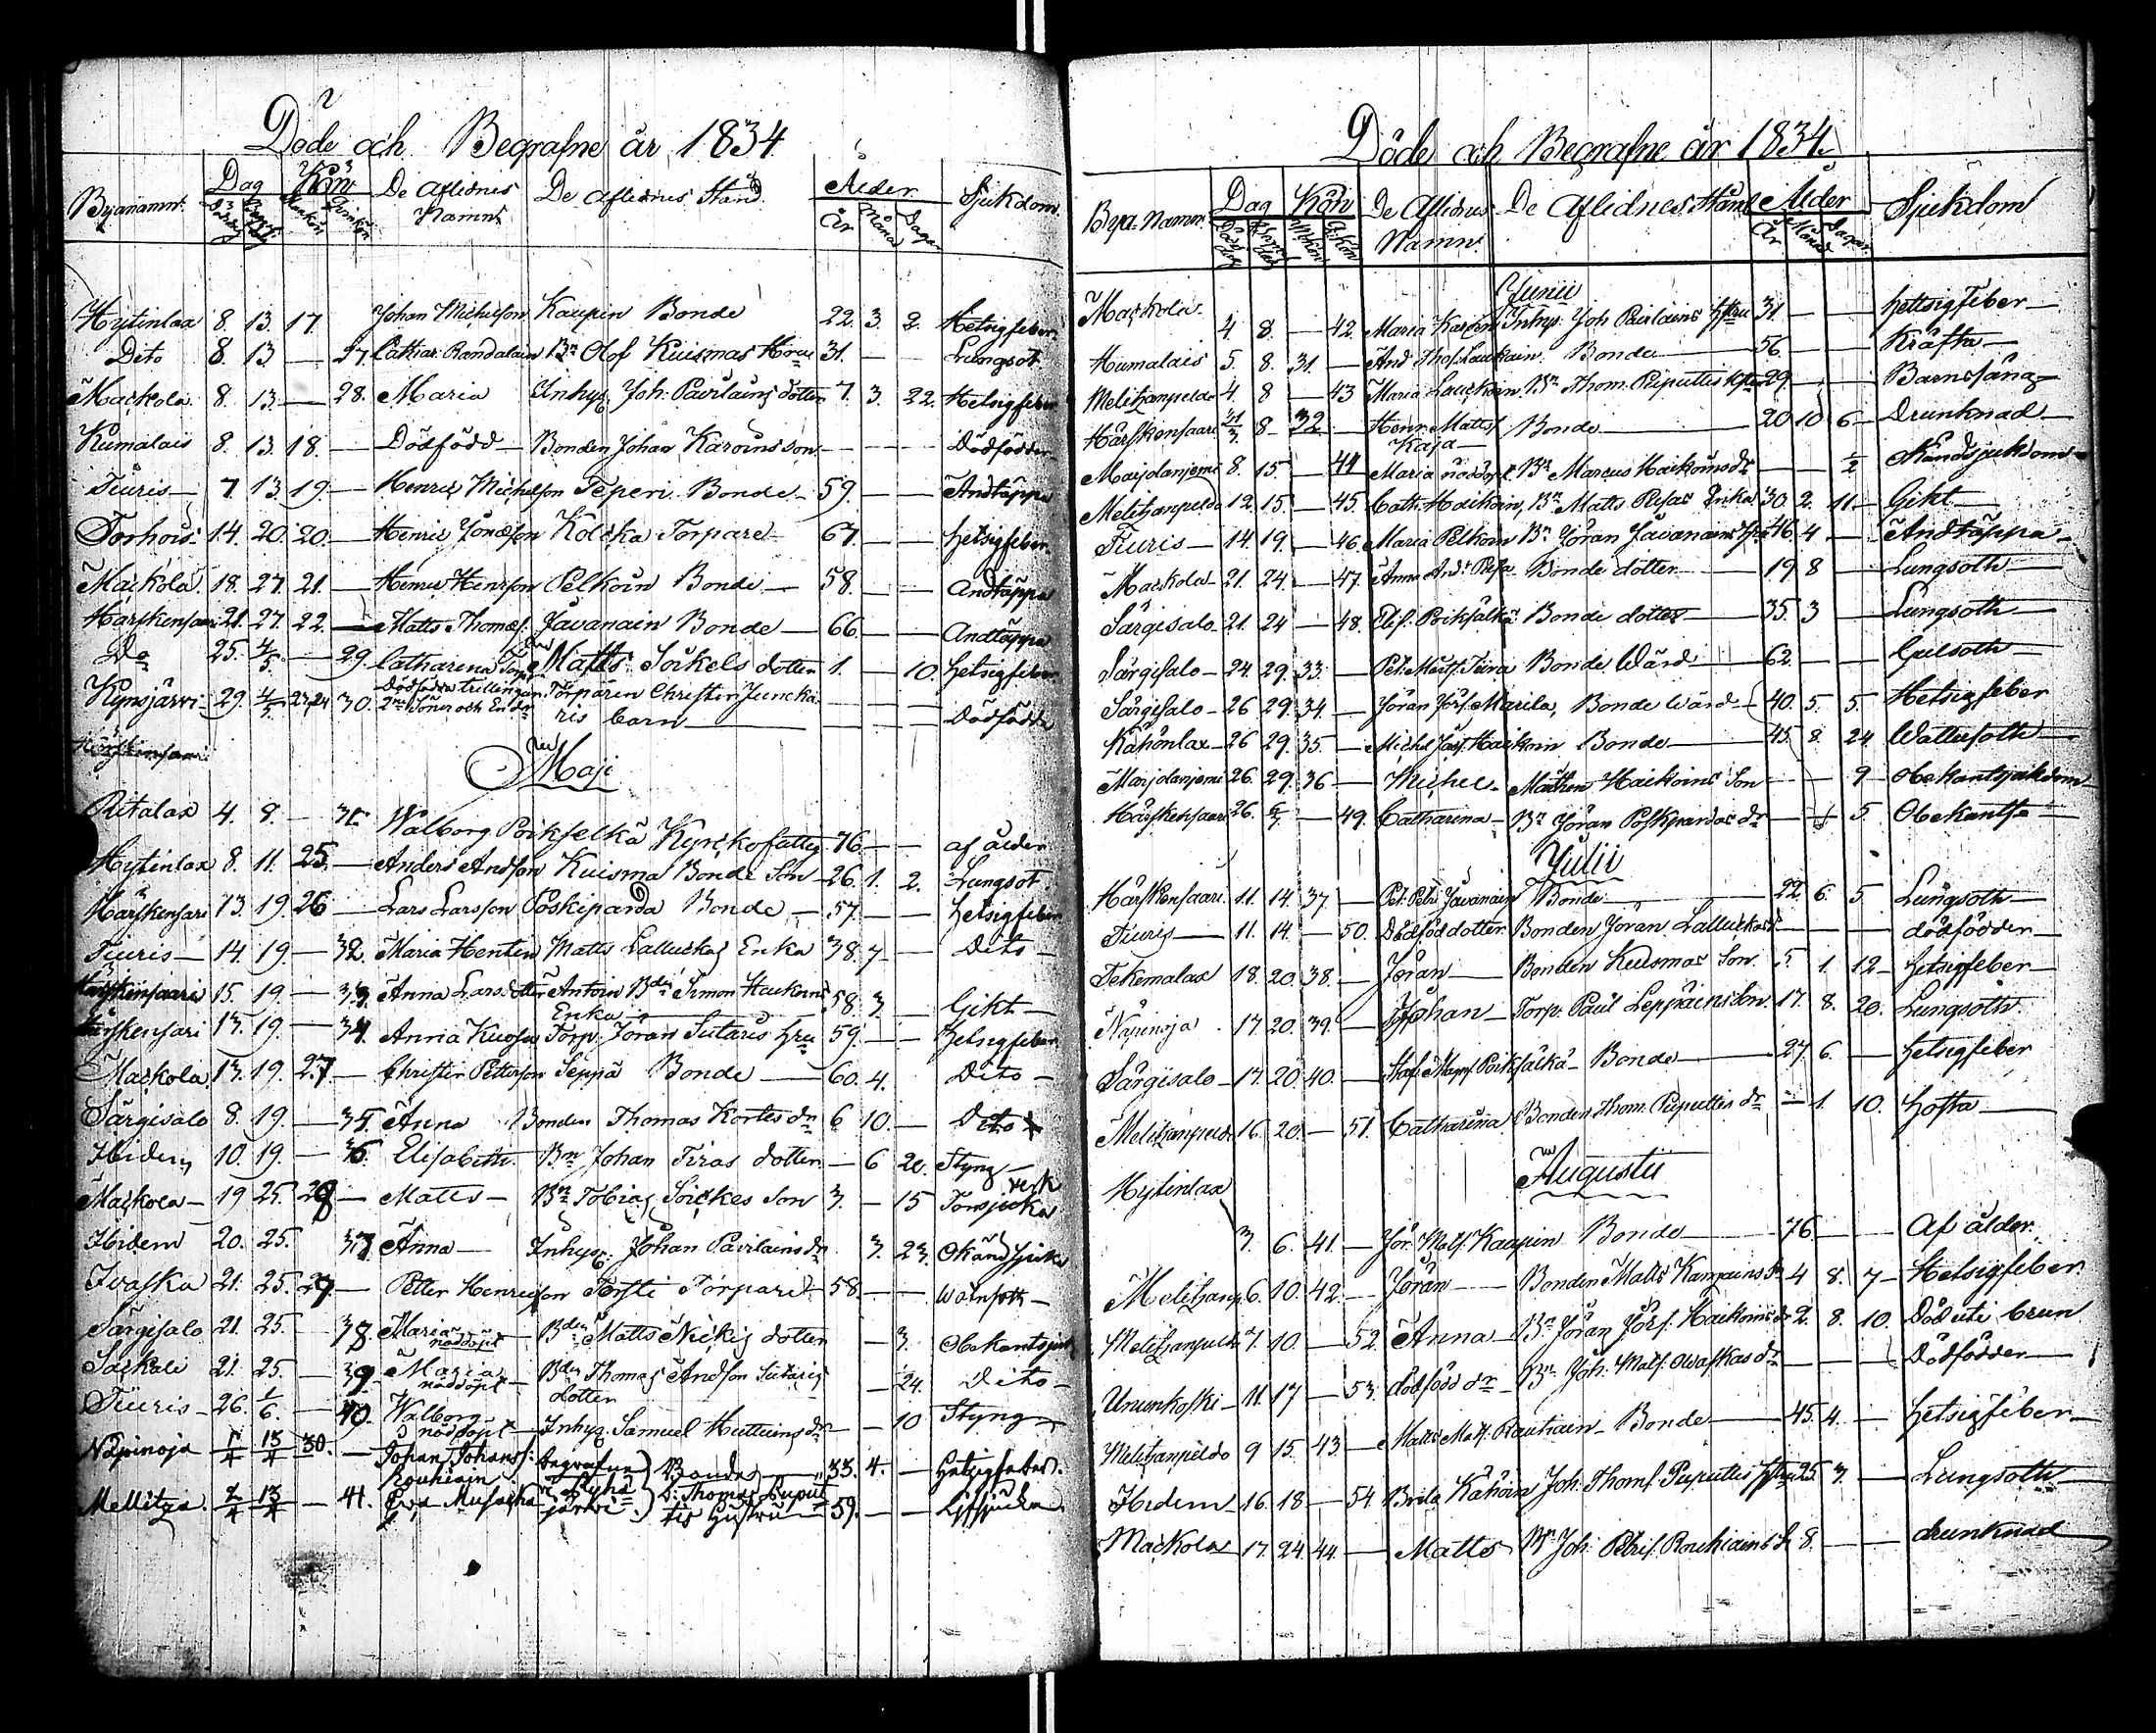 Döde och Begrafne år 1834
Byanamn. Dag Kön De Aflidnes Namn De Aflidnes Stånd Ålder Sjukdom
År Måna Dagar
Hytinlax 8. 13. 17. Johan Michelson Kaupin Bonde 22. 3. 2. Hetsigfeber.
Dito 8. 13 — 27. Cathar. Randalain Bn Olof Kuismas Hru 31. — — Lungsot.
Mackola 8. 13. — 28. Maria Inhys. Joh. Pavilains dotter 7. 3. 22. Hetsigfeber
Kumalais 8. 13. 18. — Dödfödd — Bonden Johan Karvins son — — — Dödfödder
Tiuris — 7. 13. 19. — Henric Michelson Teperi Bonde — 59. — — Andtäppa
Torhois. 14. 20. 20. — Henric Jönsson Kölcka Torpare — 67. — — Hetsigfeber.
Mackola. 18. 27. 21. — Henric Henrsson Pelkoin Bonde — 58. — — Andtäppa
Härskensaari 21. 27. 22. — Matts Thomæs. Javanain Bonde — 66. — — Andtäppa
Do 25. 4/5. — 29. Catharina Torp. Matts Soikels dotter 1. — 10. Hetsigfeber.
Kynsjärvi 29. 4/5. 23,24 30. Dödfödde trillingar 2ne Söner och En dr Torparen Christer Juncka-
ris barn — — — — Dödfödde
Härskensaari
Maji
Ritalax 4. 8. — 31. Walborg Poikselkä Kyrkofattig 76. — — af ålder
Hytinlax 8. 11. 25. — Anders Andsson Kuisma Bonde Son 26. 1. 2. Lungsot
Härskensari 13. 19. 26 — Lars Larsson Poskiparda Bonde — 57. — — Hetsigfeber
Tiuris — 14. 19. — 32. Maria Henten Matts Lalluckas Enka 38. 7 — Dito —
Härskensaari 15. 19. — 33. Anna Larsdotter Antoin Bden Simon Haickoins
Enka — 58. 3 — Gikt —
Härskensari 13. 19. — 34. Anna Kuosa Torp. Jöran Sutaris Hru 59. — — Hetsigfeber
Mackola. 13. 19. 27. — Christer Petterson Seppä Bonde — 60. 4. Dito —
Särgisalo 8. 19. — 35. Anna Bonden Thomas Kortes dr 6 10. — Dito
Hidem 10. 19. — 36. Elisabeth. Bn Johan Tiras dotter — 6 20. Styng —
Mackola — 19 25. 28 — Matts — Bn Tobias Soickes Son 3. — 15 Torsjoka
Hidem 20. 25. 37. Anna — Inhys. Johan Pavilains dr 3. 23. Okänd Sjuk
Ivaska 21. 25. 29 — Petter Henricson Torsti Torpare — 58. — — Watnsott —
Särgisalo 21. 25. — 38. Maria nöddöpt — Bden Matts Nickis dotter — 3. Obekantsjuk
Säckäli 21. 25. — 39 Maria nöddöpt — Bden Thomas Andsson Sutaris
dotter — 24. Dito —
Tiuris — 26. 1/6. — 40. Walborg nöddöpt — Inhys. Samuel Huttuins dr — — 10 Styng —
Näpinoja 13/4 30. — Johan Johans: Rouhiain. begrafne Bonde — 33. 4. — Hetsigfeber.
Mellitza. 13/4 — 41. Eva Musacka i Pyhäjärvi. B: Thomas Puput-
tis Hustru — 59. — —
Döde och Begrafne år 1834.
Bya-Namn. Dag Kön De Aflidnes Namn. De Aflidnes Stånd Ålder Sjukdom
År Månad Dagar
Junii
Mackola. 4 8. — 42. Maria Karoin Inhys. Joh Pavilains Hstru 31 — — hettsigfeber —
Humalais 5. 8. 31. — And. Thos. Lauckain. Bonde — 56. — — Kräfta —
Melitzanpeldo 4. 8 — 43 Maria Lauckain Bn Thom. Puputtis Hstru 29. — — Barnsäng —
Härskensaari 8 — 32 — Henr. Matts. Kaja — Bonde — 20 10 6 — Drunknad —
Marjolanjemi 8. 15. — 44 Maria nöddöpt Bn Marcus Haickoins dr — — 1/2
Melitzanpeldo 12. 15 — 45. Cath. Haikoin, Bn Matts Pusas Enka 30. 2. 11 — Gikt —
Tiuris — 14. 19. — 46. Maria Pelkoin Bn Jöran Javanains Hru 46. 4 — Andtäppa —
Mackola — 21. 24. — 47. Anna Andr Pusa Bonde dotter — 19 8 — Lungsoth —
Särgisalo — 21. 24 — 48. Elis. Poikselkä Bonde dotter — 35. 3 — Lungsoth —
Särgisalo — 24. 29. 33. — Pet. Matts. Tiura Bonde Wärd — 62. — — Gulsoth —
Särgisalo — 26 29. 34. — Jöran Jörs. Marila, Bonde wärd — 40. 5. 5. Hetsigfeber
Kähönlax — 26 29. 35. — Michel Jös. Haickoin Bonde — 45. 8. 24 Wattusoth —
Marjolanjemi 26. 29. 36 — Michel — Matts Haickoins Son — — 9 — obekantsjukdom —
Härskensaari 26. 6/7. — 49. Catharina — Bn Jöran Poskipardas dr — 5 Obekantsj —
Julii
Härskensaari. 11. 14. 37. — Pet. Petri Javanain Bonde — 22. 6. 5. Lungsoth —
Tiuris — 11. 14. — 50. Dödföd dotter Bonden Jöran Lalluckas — — — dödfödder —
Tekemalax 18. 20. 38. — Jöran — Bonden Kuismas Son. 5. 1. 12 — Hetsigfeber —
Näpinoja . 17. 20. 39. — Johan — Torp. Paul Leppäins Son. 17. 8. 20. Lungsoth.
Särgisalo — 17. 20. 40. — Staf. Magns. Poikselkä — Bonde — 27. 6. — Hetsigfeber
Melitzanpeldo 16. 20. — 51. Catharina Bonden Thom. Puputtis dr — 1. 10. Hosta —
Augustii
Hytinlax 3. 6. 41. — Jör. Mats. Kaupin Bonde — 76. — — Af ålder.
Melitzanp. 6. 10. 42. — Jöran — Bonden Matts Kampains Sn 4 8. 7 — Hetsigfeber.
Melitzanpeldo 7. 10. — 52. Anna — Bn Jöran Jörs. Haickoins dr 2. 8. 10. Död uti brun
Ununkoski — 11. 17 — 53. dödfödd dr — Bn Joh. Mats. Owaskas dr — — — Dödfödder —
Melitzanpeldo 9 15. 43. — Matts Mats. Rautiain Bonde — 45. 4. — Hetsigfeber —
Hidem — 16. 18 — 54. Brita Kähöin Joh. Thoms. Puputtis Hstru 25. 3. — Lungsoth —
Mackola 17. 24. 44. — Matts Bn Joh. Petris. Rouhiains S. 8. — — drunknad